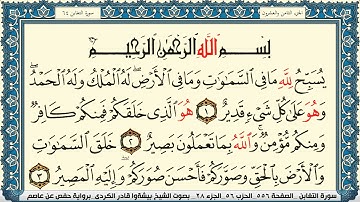 الجزء الثامن والعشرون
سورة التغابن ٦٤
بِسْمِ اللَّهِ الرَّحْمَٰنِ الرَّحِيمِ
يُسَبِّحُ لِلَّهِ مَا فِي السَّمَاوَاتِ وَمَا فِي الْأَرْضِ ۖ لَهُ الْمُلْكُ وَلَهُ الْحَمْدُ ۖ
وَهُوَ عَلَىٰ كُلِّ شَيْءٍ قَدِيرٌ ١ هُوَ الَّذِي خَلَقَكُمْ فَمِنكُمْ كَافِرٌ
وَمِنكُم مُّؤْمِنٌ ۚ وَاللَّهُ بِمَا تَعْمَلُونَ بَصِيرٌ ٢ خَلَقَ السَّمَاوَاتِ
وَالْأَرْضَ بِالْحَقِّ وَصَوَّرَكُمْ فَأَحْسَنَ صُوَرَكُمْ ۖ وَإِلَيْهِ الْمَصِيرُ ٣
سورة التغابن الصفحة ٥٥٦ الحزب ٥٦ الجزء ٢٨ بصوت الشيخ بيشةوا قادر الكردي برواية حفص عن عاصم